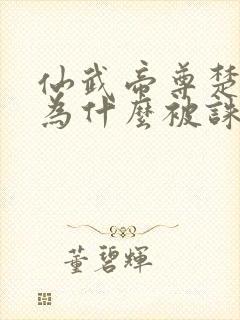 仙武帝尊楚
為什麼被誅
董碧輝